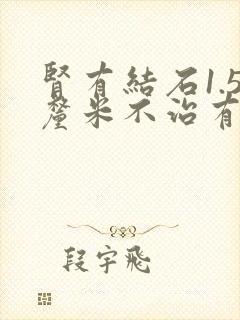 腎有結石1.5
釐米不治有
段宇飛